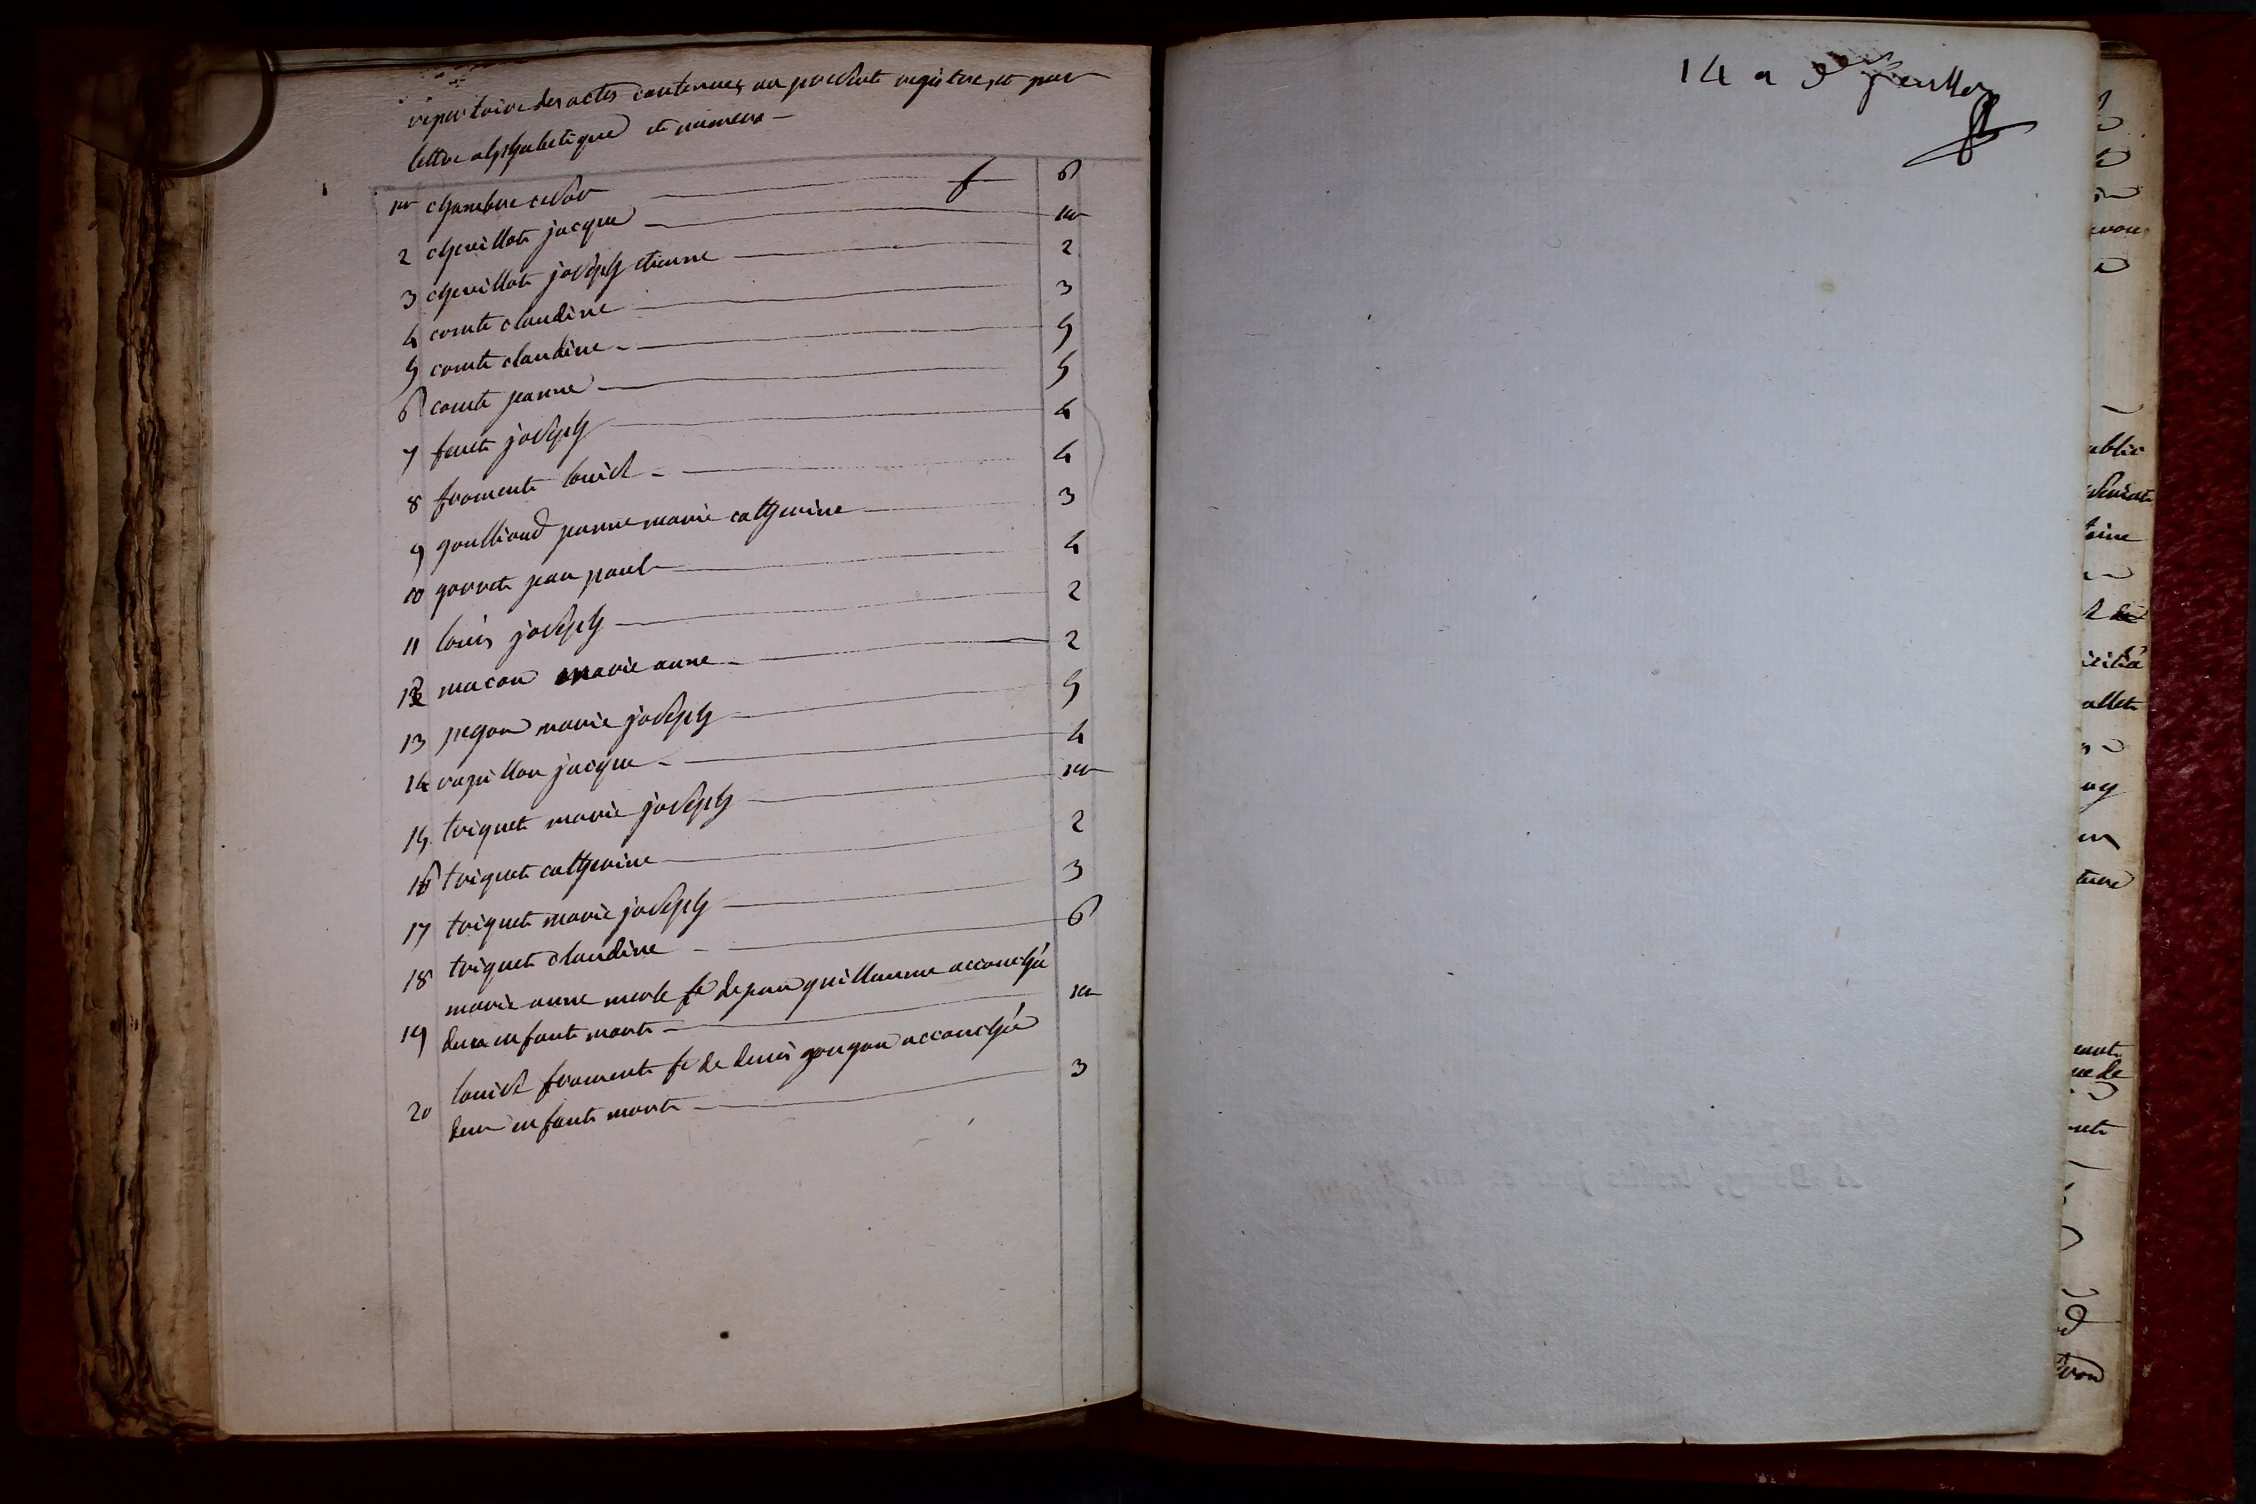 repertoire des actes contenues au present registre, et par
lettre alphabetique et numero -
1er chambre cesar f 6
2 chevillot jacque 1er
3 chevillot joseph etienne 2
4 comte claudine 3
5 comte claudine 5
6 comte jeanne 5
7 feuct joseph 4
8 froment louise 4
9 goulliaud jeanne marie catherine 3
10 gorret jean paul 4
11 louis joseph 2
12 macon marie anne 2
13 pegon marie joseph 5
14 rapillon jacque 4
15 triquet marie joseph 1er
16 triquet catherine 2
17 triquet marie joseph 3
18 triquet claudine 6
19 marie anne merle fe de jean guillaume accouchée
d'un enfant mort 1er
20 louise froment fe de denis gongon accouchée
d'un enfant mort 3
14 a feuillet